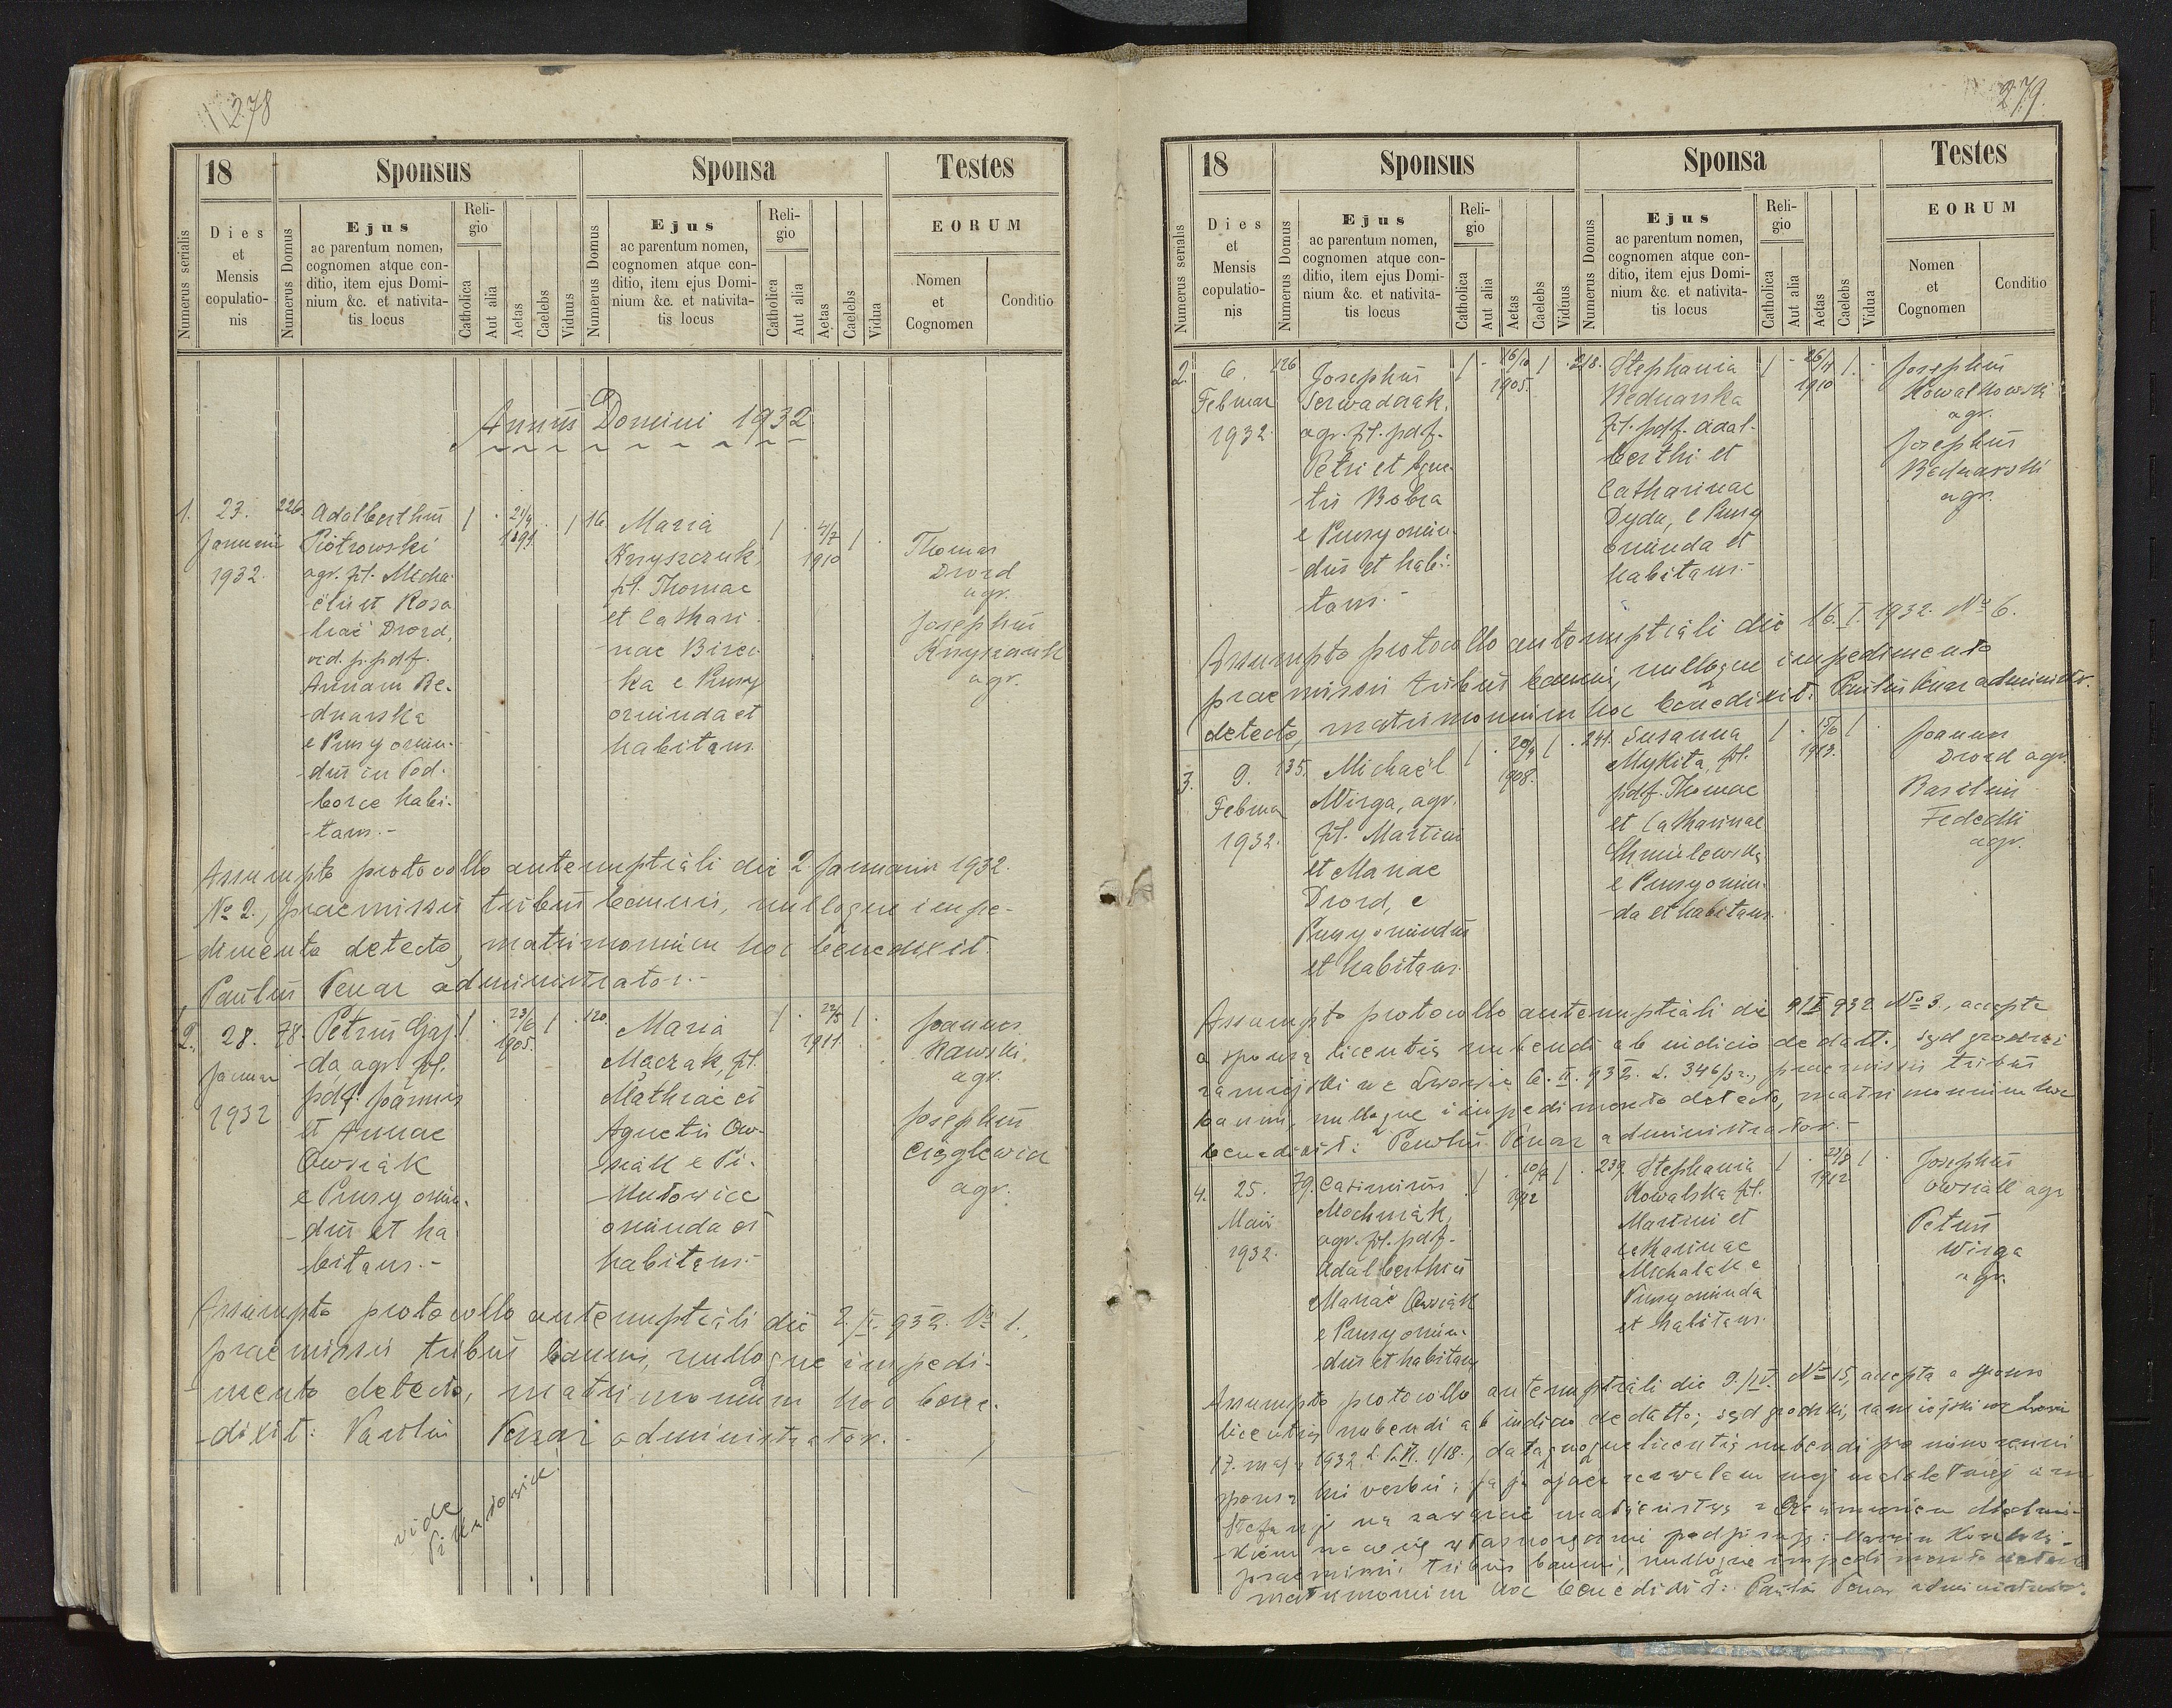 278
18 Sponsus Sponsa Testes
Numerus serialis
Dies
et
Mensis
copulatio-
nis
Numerus Domus
Ejus
ac parentum nomen,
cognomen atque con-
ditio, item ejus Domi-
nium &c. et nativita-
tis locus
Reli-
gio
Catholica
Aut alia
Aetas
Caelebs
Viduus
Numerus Domus
Ejus
ac parentum nomen,
cognomen atque con-
ditio, item ejus Domi-
nium &c. et nativita-
tis locus
Reli-
gio
Catholica
Aut alia
Aetas
Caelebs
Vidua
EORUM
Nomen
et
Cognomen
Conditio
Annus Domini 1932
1.
23.
Januarii
1932.
226.
Adalberthus
Piotrowski
agr. fil. Micha-
-elis et Rosa
-liae Drozd,
vid. p. pdf.
Annam Be-
-dnarska
e Prusy oriun-
-dus in Pod-
-borce habi-
-tans.-
1 · 21/4 · 1
16.
Maria
Knyszczuk,
fil. Thomae
et Cathari-
-nae
e Prusy
oriunda et
habitans
1 · 4/7 1 ·
1910
Thomas
Drozd
agr.
Josephus
agr.
Assumpto protocollo antenuptiali die 2. Januarii 1932.
No 2., praemissis tribus bannis, nulloque impe-
-dimento detecto, matrimonium hoc benedixit.
Paulus Penar administrator.-
2.
28.
Januar
1932
78.
Petrus Gaj-
-da, agr. fil.
pdf. Joannis
et Annae
Owsiak
e Prusy oriun-
-dus et ha-
-bitans.-
1 · 23/6 1 ·
1905.
120.
Maria
Mączak, fil.
Mathiae et
Agnetis Ow-
-siak e Pi-
-kułowice
oriunda et
habitans.-
1 · 22/5 1 ·
1911
Joannes
Rawski,
agr.
Josephus
Cieglewicz
agr.
Assumpto protocollo antenuptiali die 2./I. 932. No 1.,
praemissis tribus bannis, nulloque impedi-
-mento detecto, matrimonium hoc bene-
-dixit: Paulus Penar administrator.-
vide
Pikułowice
279.
18 Sponsus Sponsa Testes
Numerus serialis
Dies
et
Mensis
copulatio-
nis
Numerus Domus
Ejus
ac parentum nomen,
cognomen atque con-
ditio, item ejus Domi-
nium &c. et nativita-
tis locus
Reli-
gio
Catholica
Aut alia
Aetas
Caelebs
Viduus
Numerus Domus
Ejus
ac parentum nomen,
cognomen atque con-
ditio, item ejus Domi-
nium &c. et nativita-
tis locus
Reli-
gio
Catholica
Aut alia
Aetas
Caelebs
Vidua
EORUM
Nomen
et
Cognomen
Conditio
2.
6.
Februar
1932.
126
Josephus
Serwadczak,
agr. fil. pdf.
Petri et Agne-
-tis Bobra
e Prusy oriun-
-dus et habi-
-tans.-
1 - 16/10 1 ·
1905.
218.
Stephania
Bednarska
fil. pdf. Adal-
berthi et
Catharinae
Dydu, e Prusy
oriunda et
habitans.-
1 - 26/11 1 · -
1910
Josephus
Kowalkowski
agr.
Josephus
Bednarski
agr.
Assumpto protocollo antenuptiali die 16. I. 1932. No 6.
praemissis tribus bannis, nulloque impedimento
detecto, matrimonium hoc benedixit: Paulus Penar administr.
3.
9.
Februar
1932.
135.
Michaël
Wirga, agr.
fil. Martini
et Mariae
Drozd, e
Prusy oriundus
et habitans.
1 · 20/9 1 ·
1908.
241.
Susanna
Mykita, fil.
pdf. Thomae
et Catharinae
Chmielewska
e Prusy oriun-
-da et habitans.
Joannes
Drozd agr.
Basilius
agr.
Assumpto protocollo antenuptiali die No 3., accepta
a sponsa licentia nubendi ab iudicio de datt., sąd grodzki
zamiejski we Lwowie 6. II. 932. L. 346/32., praemissis tribus
bannis, nulloque impedimento detecto, matrimonium hoc
benedixit: Paulus Penar administrator.-
4.
25.
Maii
1932.
79.
Casimirus
Mochnak,
agr. fil. pdf.
Adalberthi et
Mariae Owsiak
e Prusy oriun-
dus et habitans
1 · 10/2 1 ·
1912
239.
Stephania
Kowalska fil.
Martini et
Catharinae
Michalak e
Prusy oriunda
et habitans.
1 · 23/8 1 ·
1912
Josephus
Owsiak agr
Petrus
Wirga
agr.
Assumpto protocollo antenuptiali die 9./IV. No 15, accepta a sponso
licentia nubendi ab iudicio de datto; sąd grodzki, zamiejski we Lwowie
17. maja 1932 dataque licentia nubendi pro minorenni
sponsa his verbis: Ja jej ojciec zezwalam mej małoletniej
Stefanji na zawarcie małżeństwa z Kazimierzem Mochna-
-kiem na co się własnoręcznie podpisuję: Marcin Kowalski.-
praemissis tribus bannis, nulloque impedimento detecto
matrimonium hoc benedixit: Paulus Penar administrator.